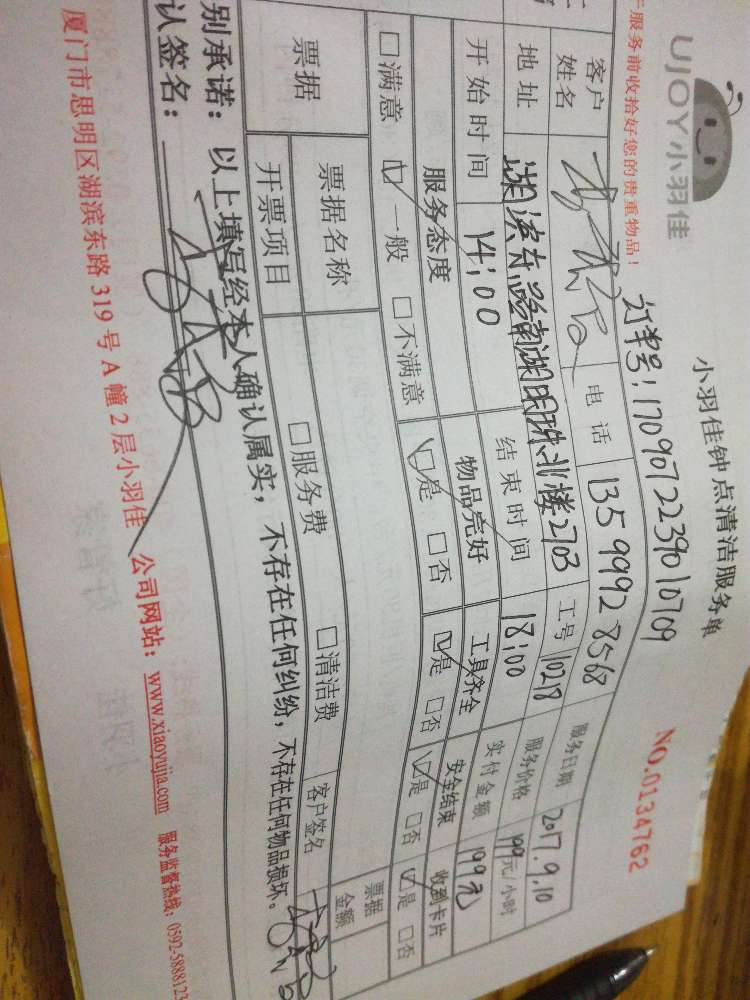 UJOY小羽佳
小羽佳钟点清洁服务单
NO.0134762
服务前收拾好您的贵重物品！
订单号：1709072239010709
客户姓名 电话 13599928568 服务日期 2017.9.10
地址 湖滨东路南湖明珠北楼2703 工号 10218 服务价格 199元/小时
开始时间 14:00 结束时间 18:00 实付金额 199元
服务态度 物品完好 工具齐全 安全结束 收到卡片
□满意 ☑一般 □不满意 ☑是 □否 ☑是 □否 ☑是 □否 ☑是 □否
票据 票据名称 票据金额
开票项目 □服务费 □清洁费 客户签名
别承诺：以上填写经本人确认属实，不存在任何纠纷，不存在任何物品损坏。
认签名：
厦门市思明区湖滨东路319号A幢2层小羽佳 公司网站：www.xiaoyujia.com 服务监督热线：0592-5888123